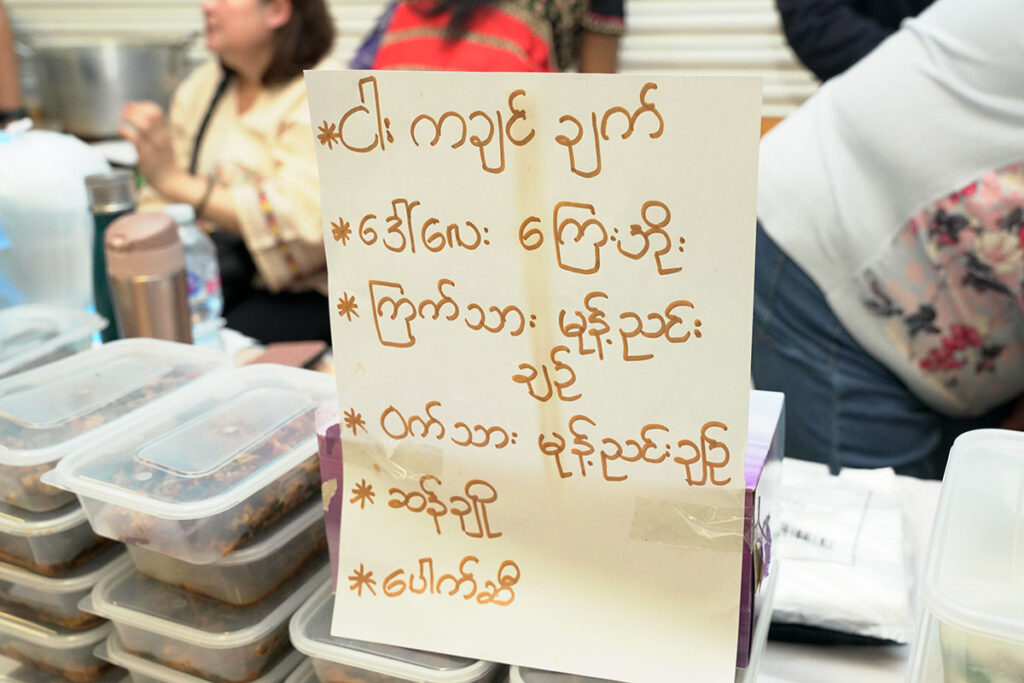 *ငါး ကချင် ချက်
* ဒေါ်လေး ကြေးဘိုး
* ကြက်သား မုန့်ညင်း
ချဉ်
* ဝက်သား မုန့်ညင်းချဉ်
* ဆန်ချို
* ပေါက်ဆီ